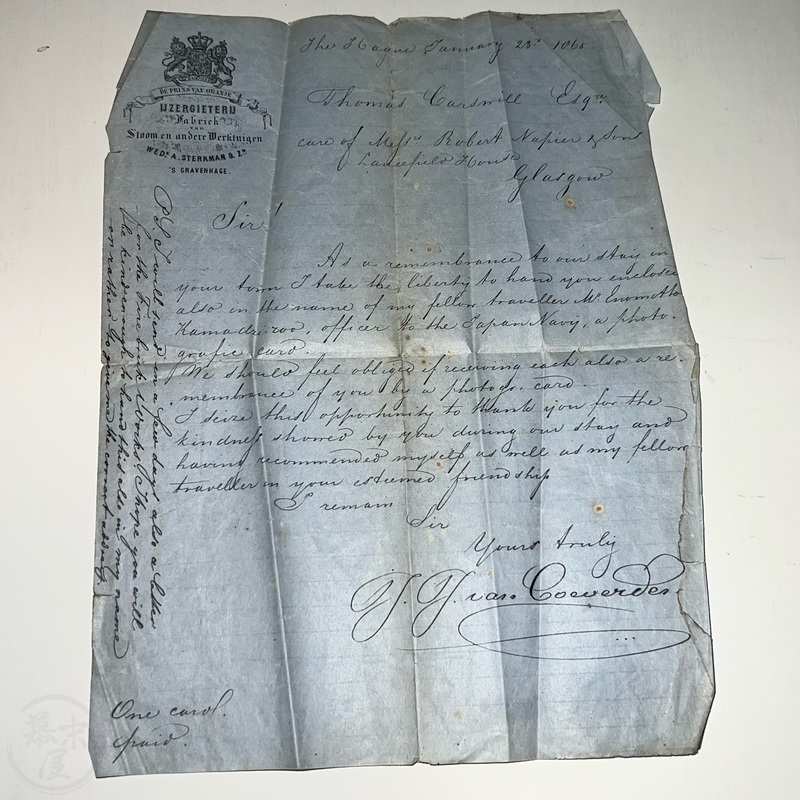 DE PRINS VAN ORANJE
IJZERGIETERIJ
Fabriek
van
Stoom en andere Werktuigen
WEDE A. STERKMAN & ZN
'S GRAVENHAGE.
The Hague January 23d 1865
Thomas Carswill Esqre
care of Messrs Robert Napier & Sons
Lancefield House
Glasgow
Sir!
As a remembrance to our stay in
your town I take the liberty to hand you enclosed
also in the name of my fellow traveller Mr Enomotto
Kamadiroo, officer to the Japan Navy, a photo-
grafic card.
We should feel obliged if receiving each also a re-
membrance of you by a photogr. card.
I seize this opportunity to thank you for the
kindness showed by you during our stay and
having recommended myself as well as my fellow
traveller in your esteemed friendship
I remain
Sir
Yours truly
J. J. van Coeverden
PS I will send in a few days also a letter
on the Works I hope you will
be kind enough to hand this also in my name
or rather to give me the correct address
One card.
paid.
幕末屋